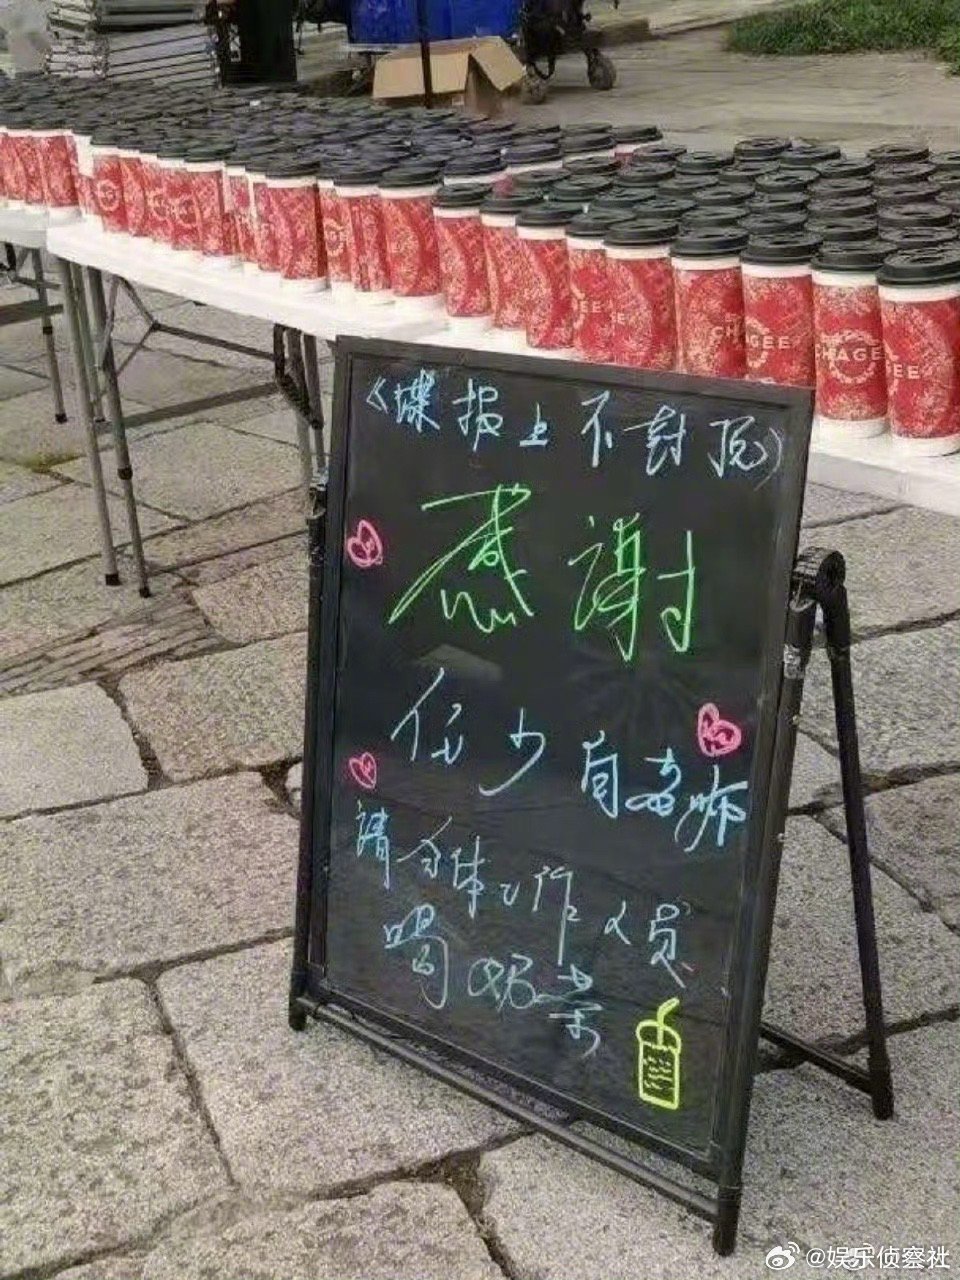 CHAGEE
CHAGEE
《谍报上不封顶》
感谢
任少白老师
请全体工作人员
喝奶茶
@娱乐侦察社